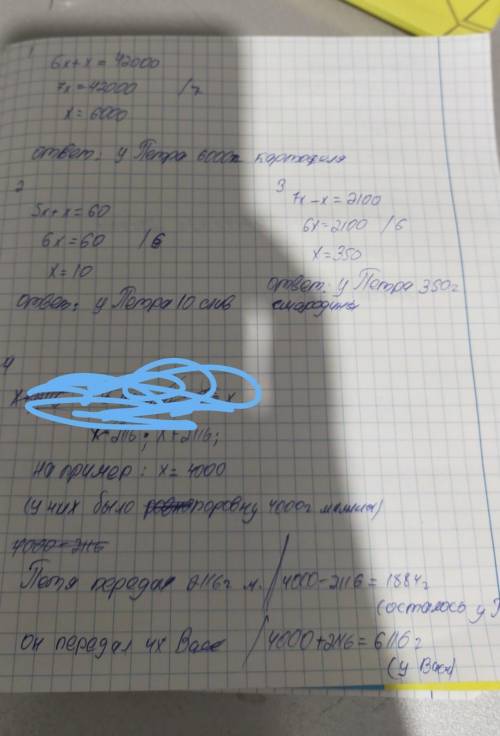 1
6x + x = 42000
7x = 42000 /7
x = 6000
ответ: у Петра 6000г картофеля
2
5x + x = 60
6x = 60 /6
x = 10
ответ: у Петра 10 слив
3
7x - x = 2100
6x = 2100 /6
x = 350
ответ: у Петра 350г
смородины
4
x - 2116; x + 2116;
например: x = 4000
(у них было поровну 4000г малины)
4000 - 2116
Петя передал 2116г м. / 4000 - 2116 = 1884г
(осталось у
он передал их Васе / 4000 + 2116 = 6116г
(у Васи)